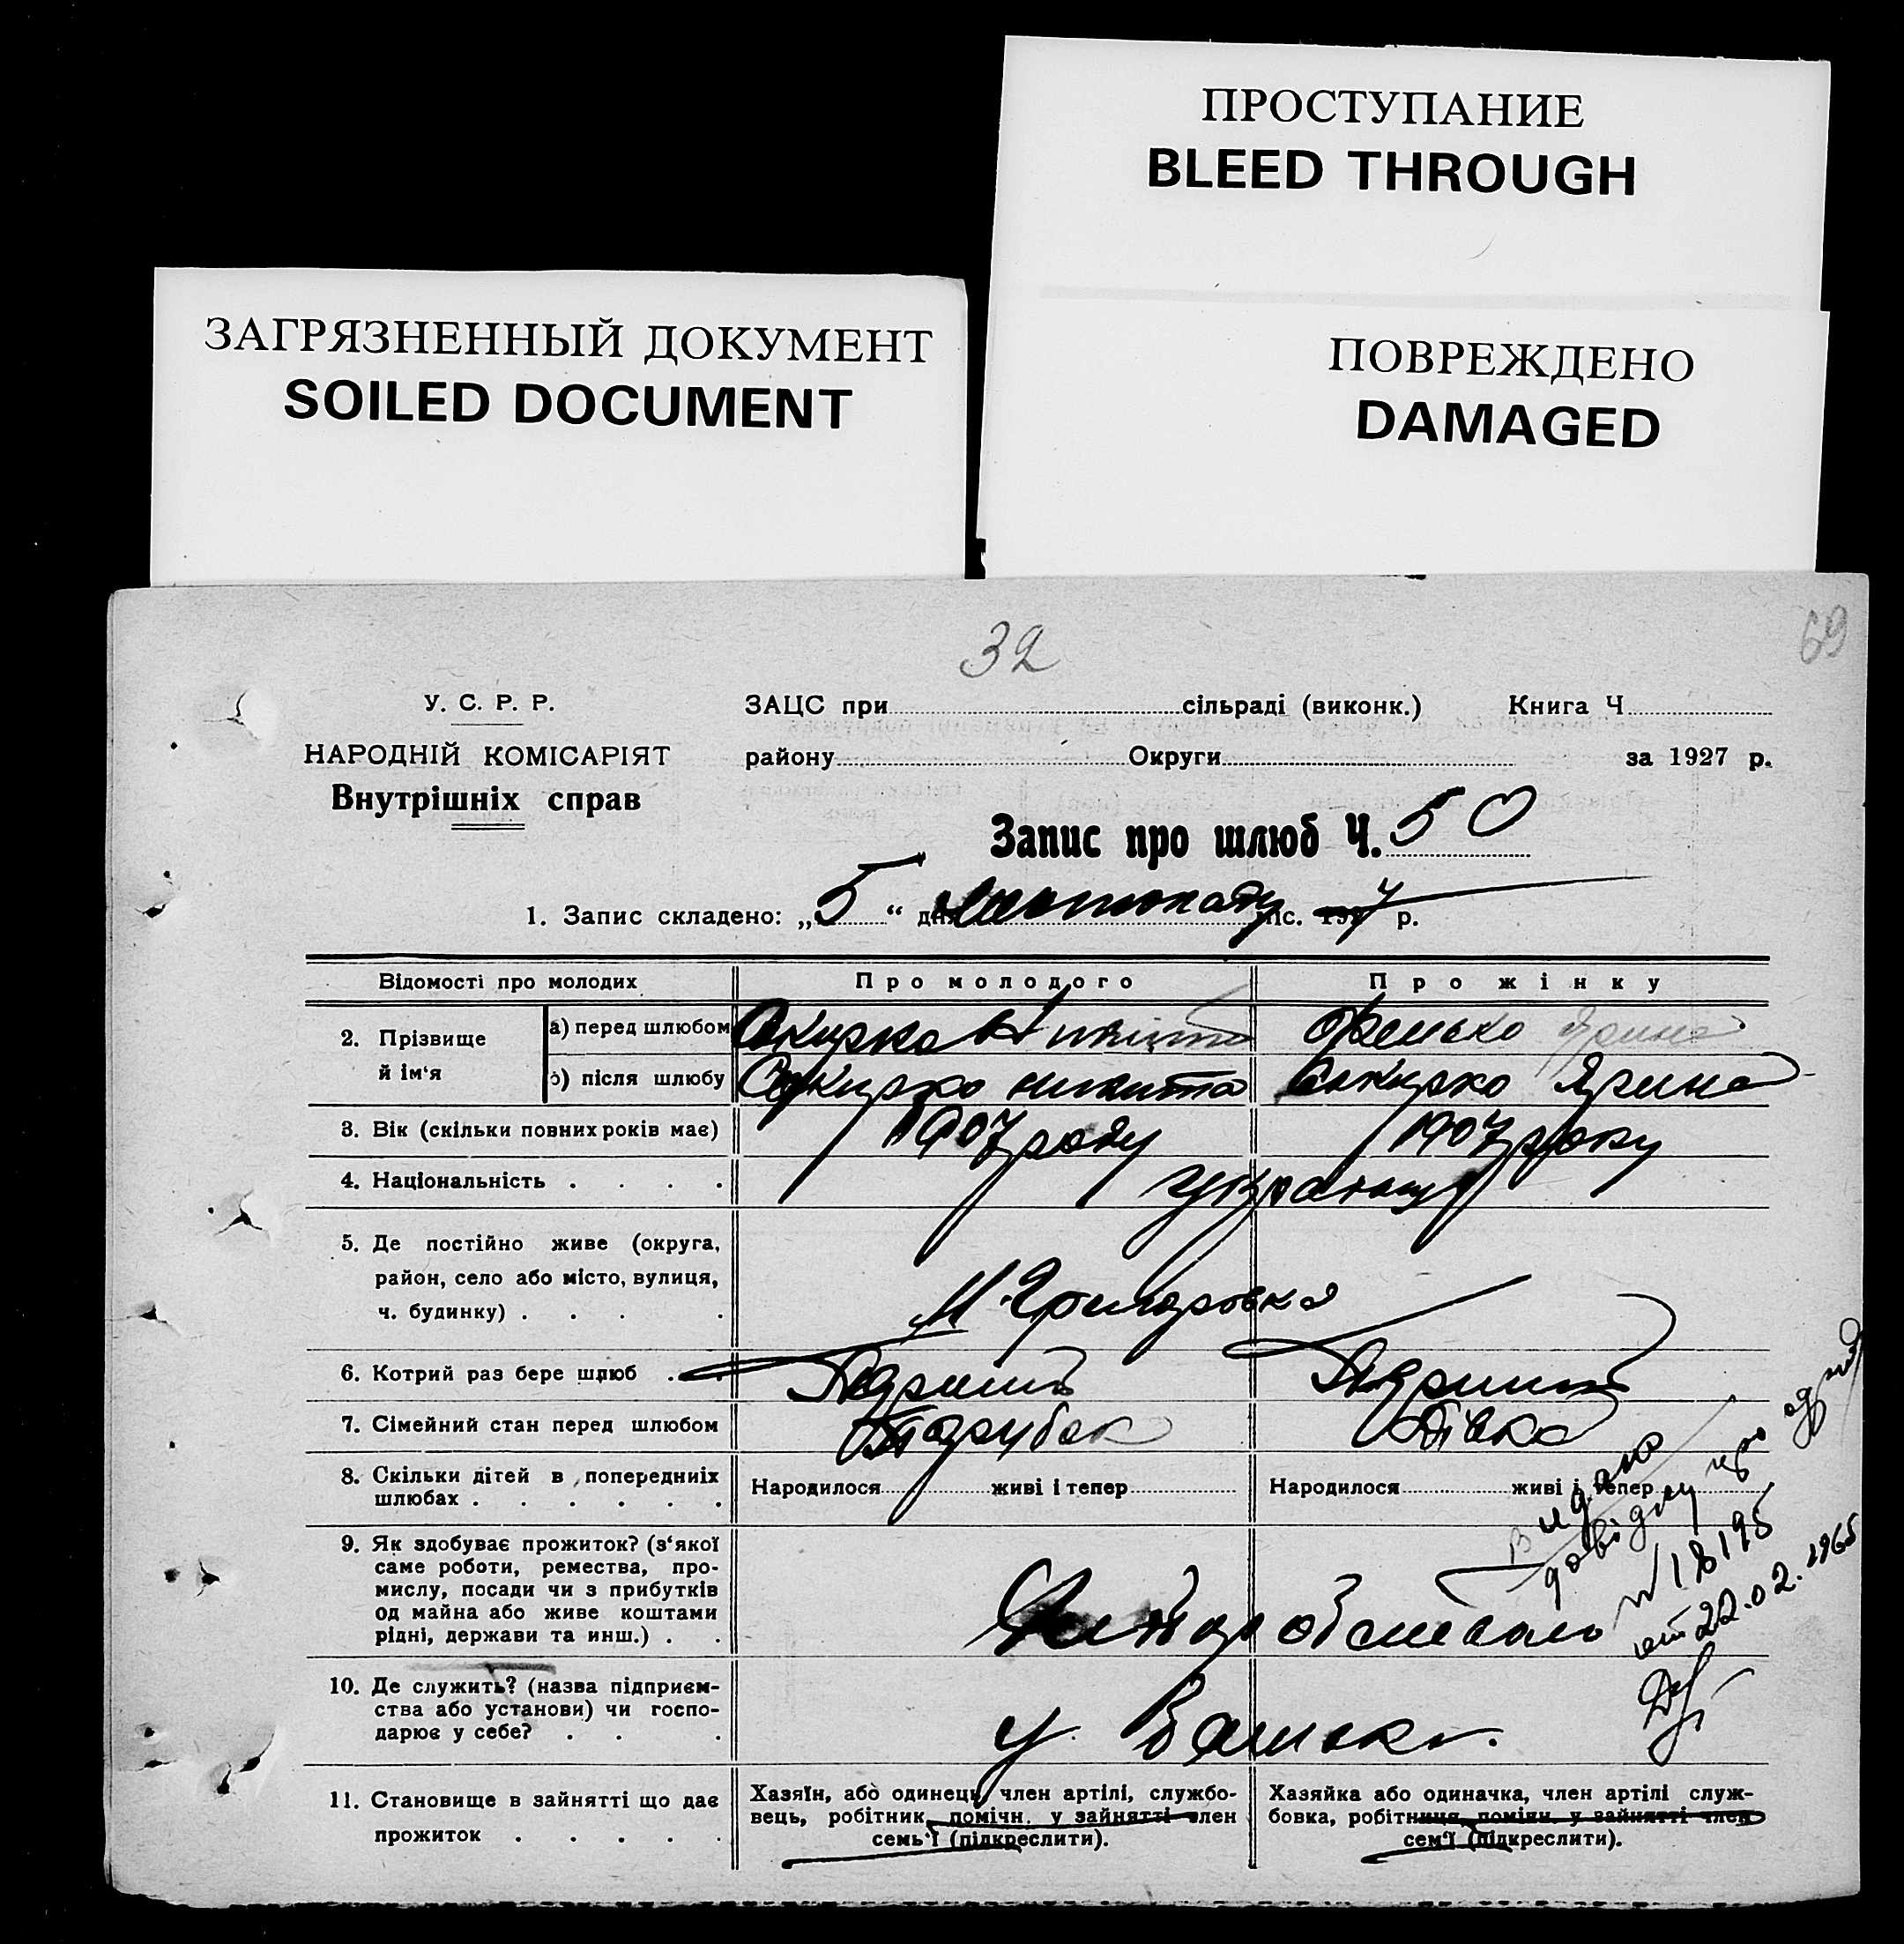 ПРОСТУПАНИЕ
BLEED THROUGH
ЗАГРЯЗНЕННЫЙ ДОКУМЕНТ
SOILED DOCUMENT
ПОВРЕЖДЕНО
DAMAGED
32
69
У. С. Р. Р.
НАРОДНІЙ КОМІСАРІЯТ
Внутрішніх справ
ЗАЦС при сільраді (виконк.) Книга Ч
району Округи за 1927 р.
Запис про шлюб Ч. 50
1. Запис складено: „5“ дня Листопаду міс. 1927 р.
Відомості про молодих Про молодого Про жінку
2. Прізвище й ім‘я
а) перед шлюбом Сокирко Ярина
б) після шлюбу Сокирко Никита Сокирко Ярина
3. Вік (скільки повних років має) 1907 року 1907 року
4. Національність . . . .
5. Де постійно живе (округа,
район, село або місто, вулиця,
ч. будинку) . . . . М. Григоровка
6. Котрий раз бере шлюб . . Перший Перший
7. Сімейний стан перед шлюбом Парубок Дівка
8. Скільки дітей в попередниіх
шлюбах . . . . . .
Народилося живі і тепер Народилося живі і тепер
9. Як здобуває прожиток? (з‘якої
саме роботи, ремества, про-
мислу, посади чи з прибутків
од майна або живе коштами
рідні, держави та инш.) . .
10. Де служить? (назва підприєм-
ства або установи) чи госпо-
дарює у себе? . . . у
11. Становище в зайнятті що дає
прожиток . . . . .
Хазяїн, або одинець, член артілі, службо-
вець, робітник, помічн. у зайнятті член
семь‘ї (підкреслити).
Хазяйка або одиначка, член артілі служ-
бовка, робітниця, помічн. у зайнятті член
сем‘ї (підкреслити).
Видано
довідку про
N 18195
от 22.02.1965